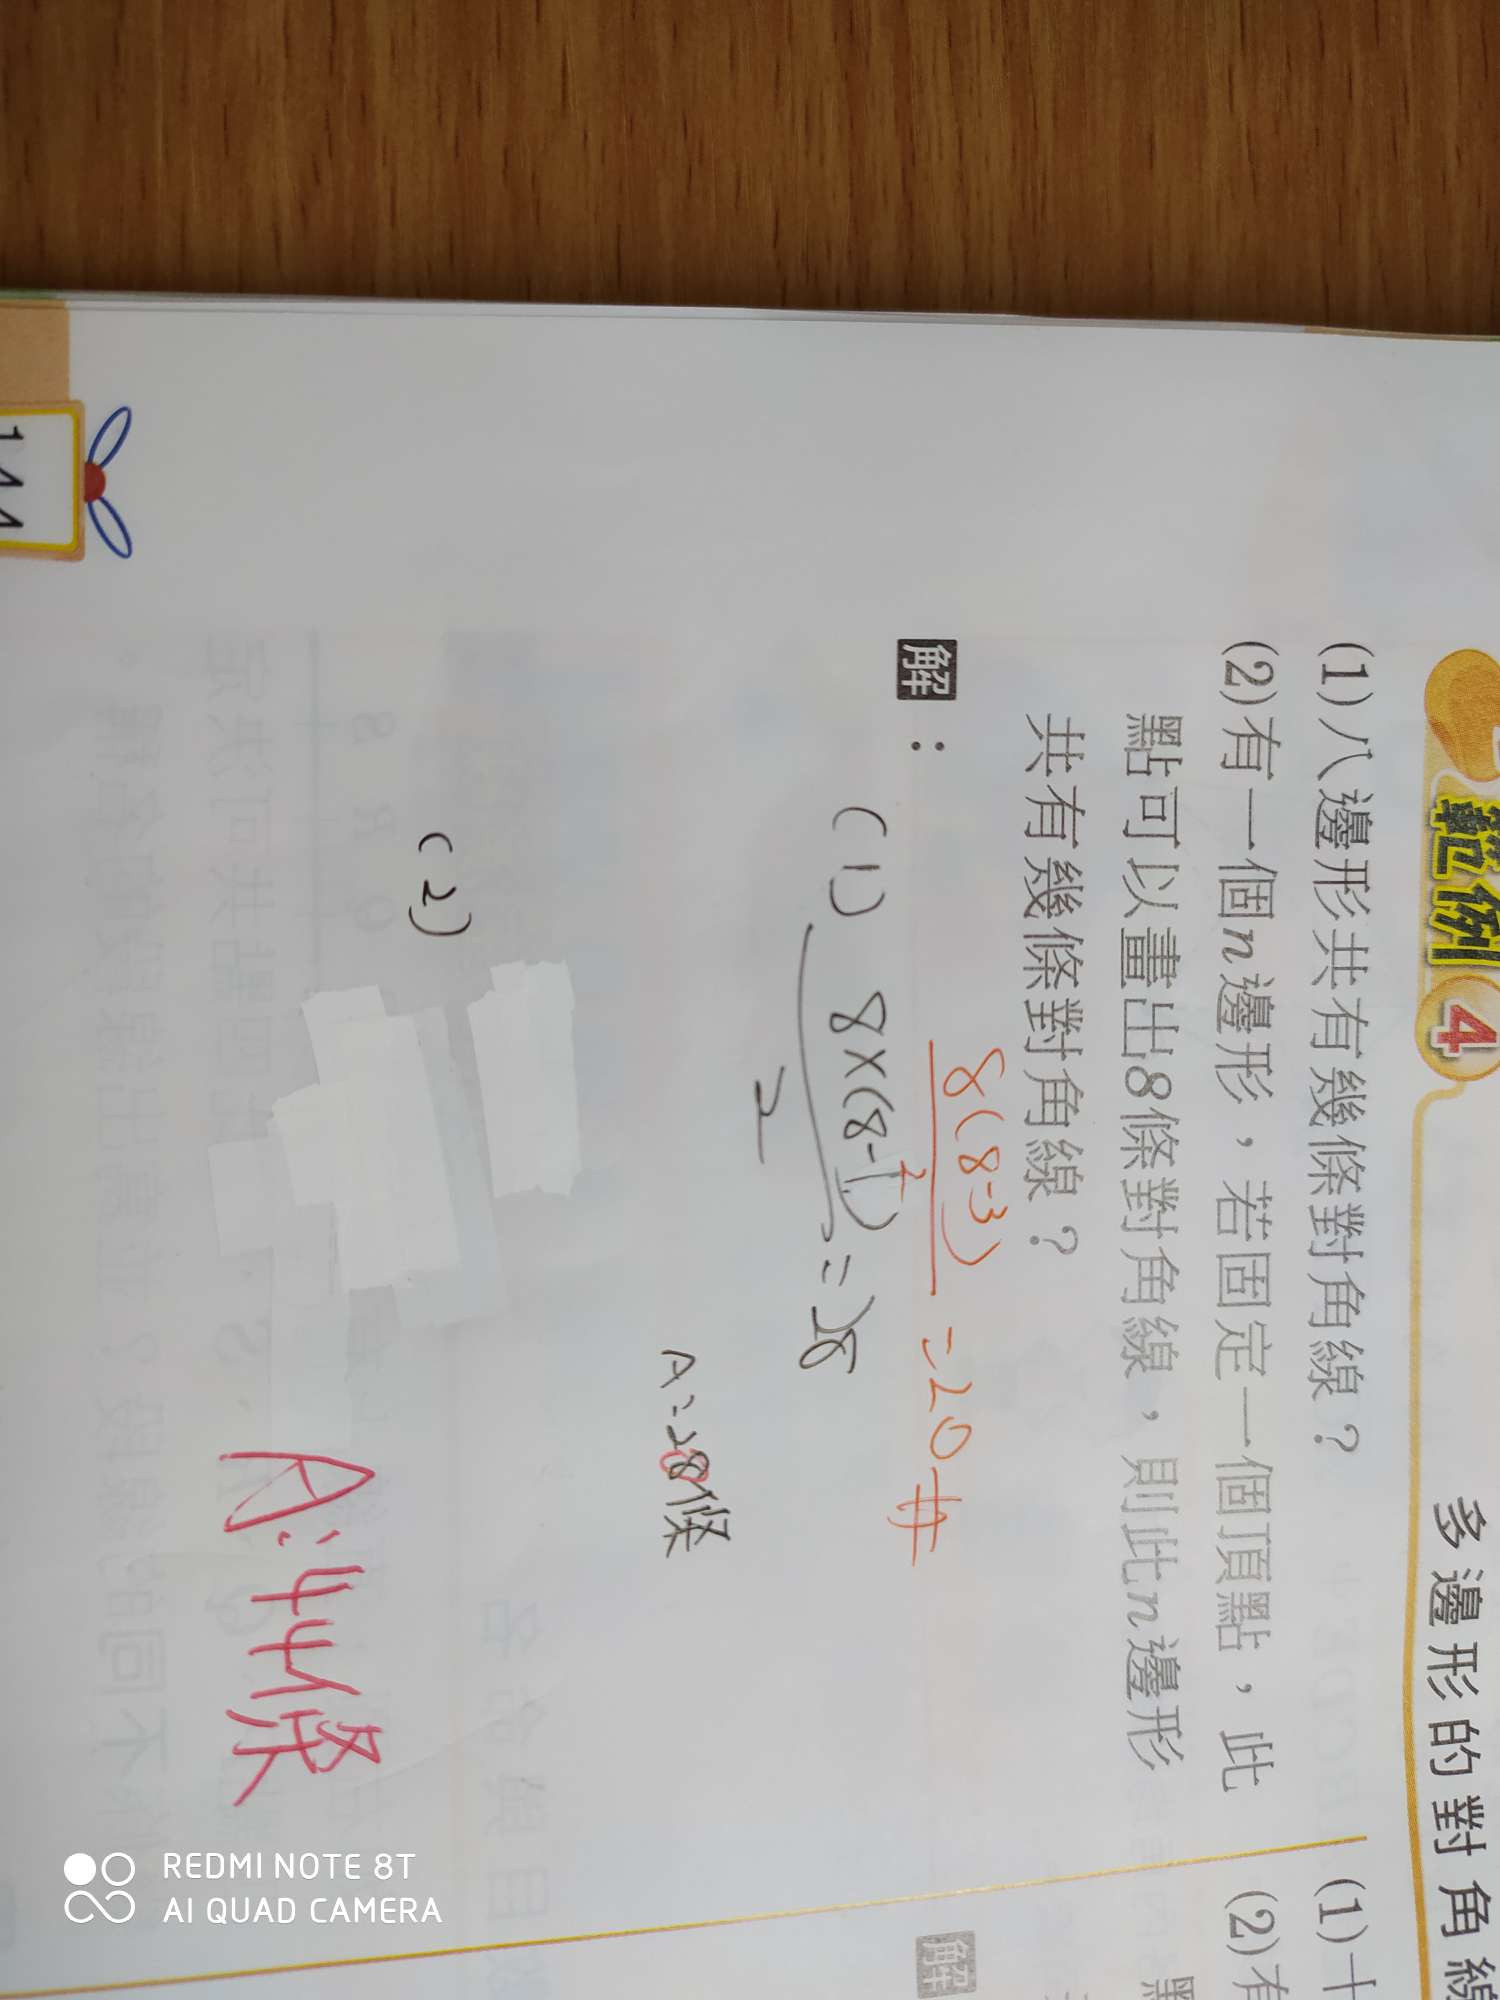 範例4
多邊形的對角線
(1)八邊形共有幾條對角線？
(2)有一個n邊形，若固定一個頂點，此
點可以畫出8條對角線，則此n邊形
共有幾條對角線？
解：
8(8-3)
=20#
(1) 8×(8-1)
2
=28
A=28條
(2)
A:44條
144
(1)十
(2)有
解
REDMI NOTE 8T
AI QUAD CAMERA